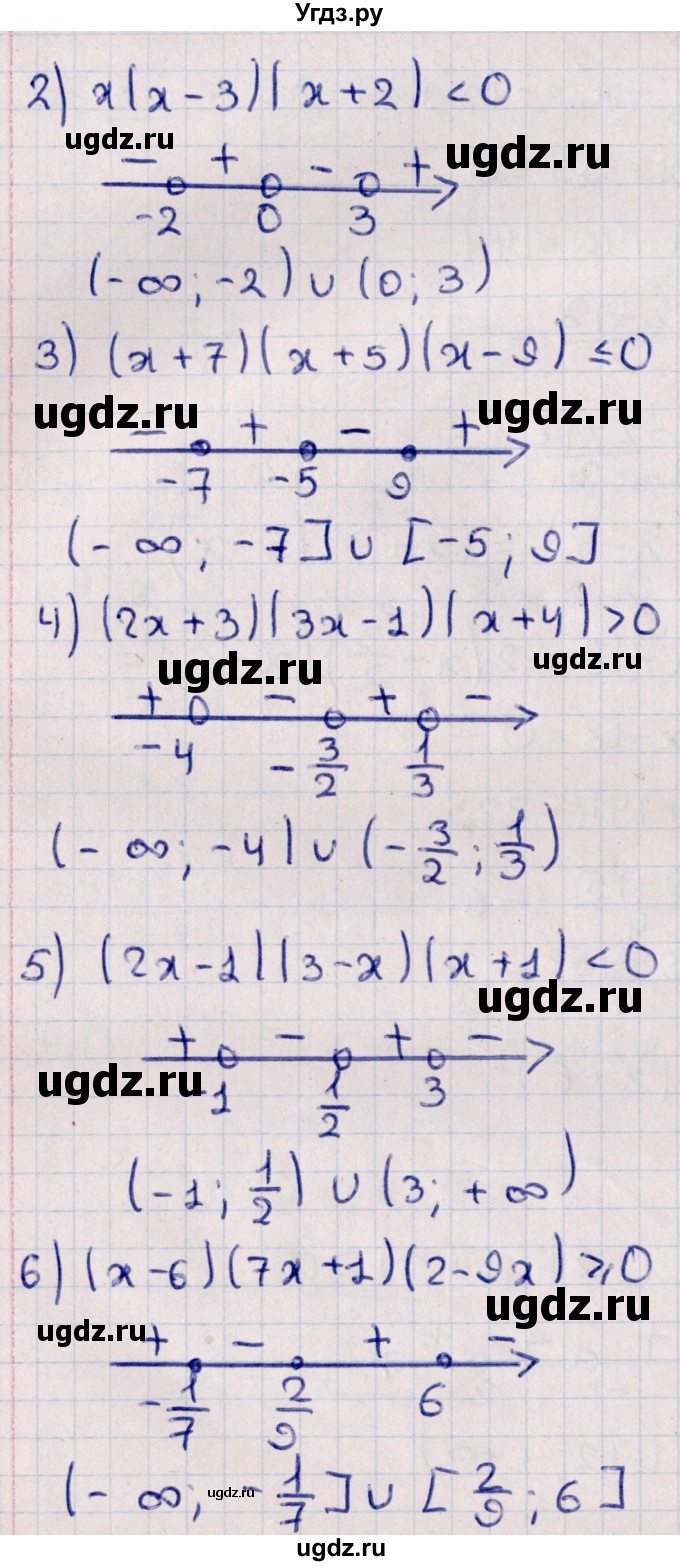 Угдз.ру
2) x(x-3)(x+2) <0
ugdz.ru
ugdz.ru
- + - +
-2 0 3
(-∞; -2) ∪ (0; 3)
3) (x+7)(x+5)(x-9) ≤0
ugdz.ru
ugdz.ru
- + - +
-7 -5 9
(-∞; -7] ∪ [-5; 9]
4) (2x+3)(3x-1)(x+4)>0
ugdz.ru
ugdz.ru
+ - + -
-4 -3/2 1/3
(-∞; -4) ∪ (-3/2; 1/3)
5) (2x-1)(3-x)(x+1) <0
ugdz.ru
+ - + -
ugdz.ru
-1 1/2 3
(-1; 1/2) ∪ (3; +∞)
6) (x-6)(7x+1)(2-9x) ⩾0
ugdz.ru
ugdz.ru
+ - + -
-1/7 2/9 6
(-∞; -1/7] ∪ [2/9; 6]
ugdz.ru
ugdz.ru